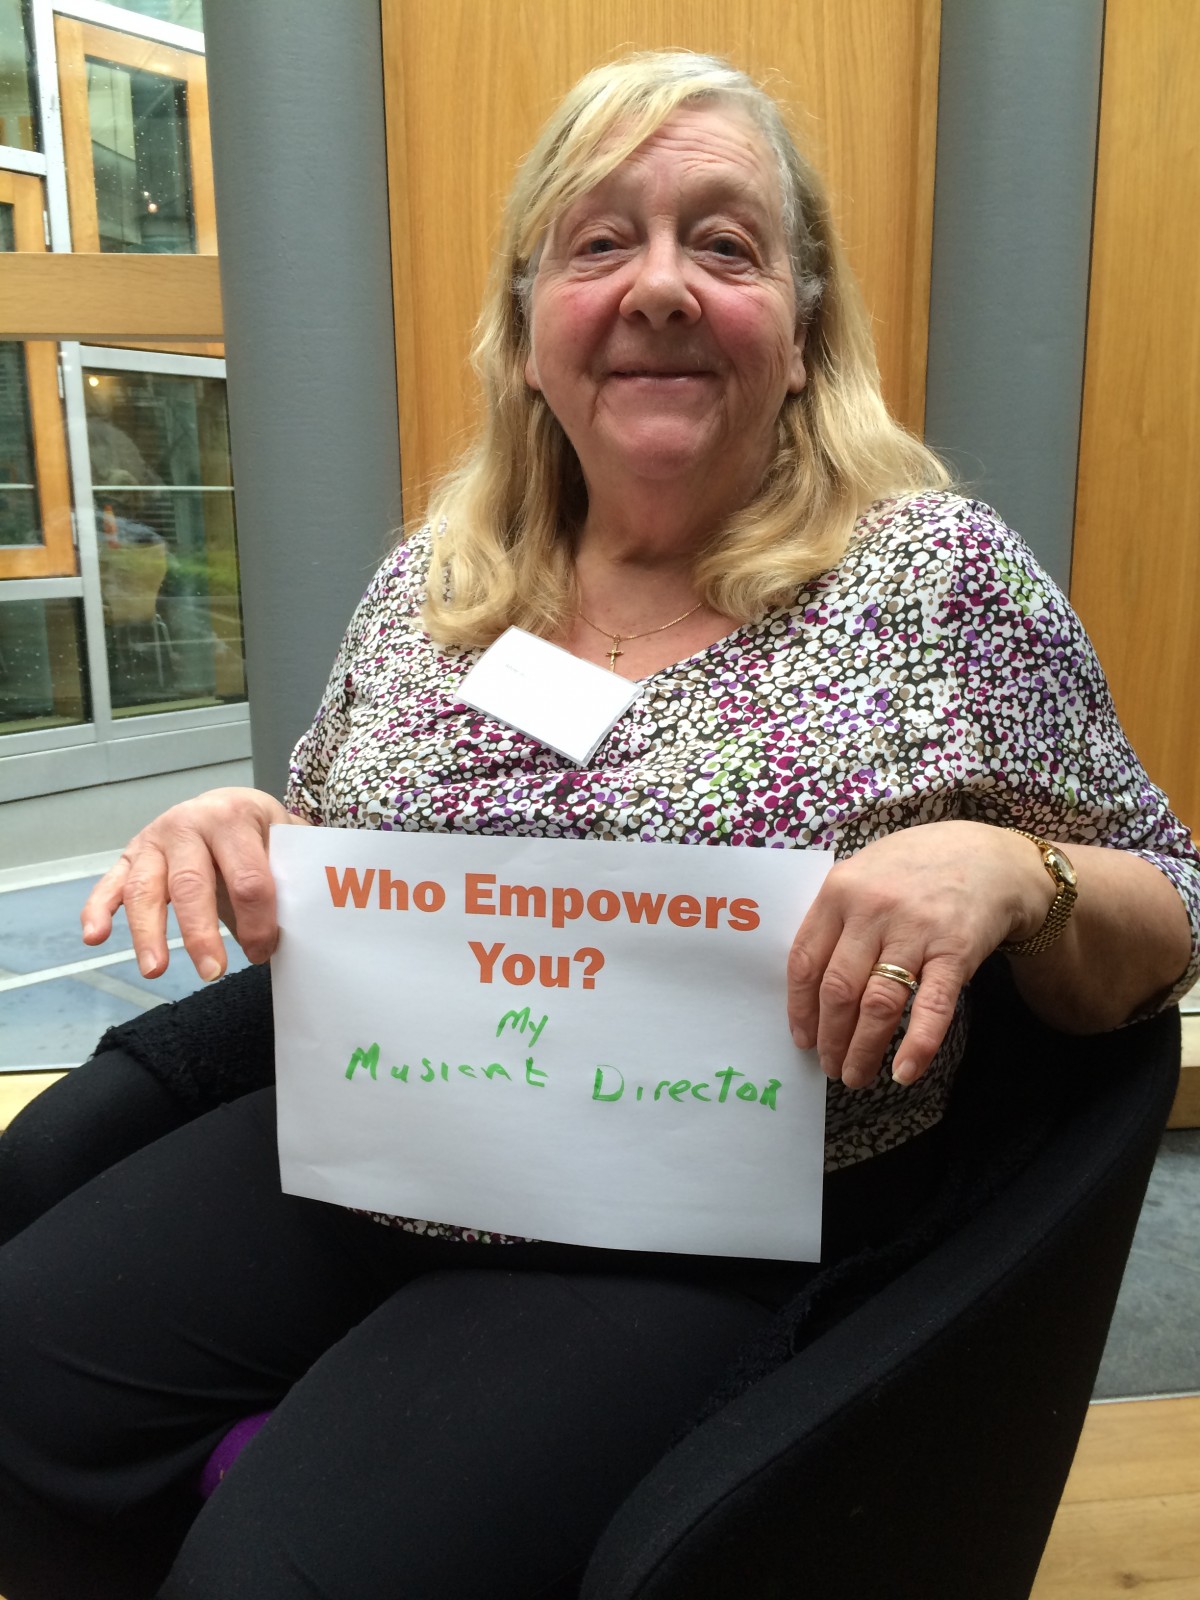 Who Empowers
You?
My
Musicat Director